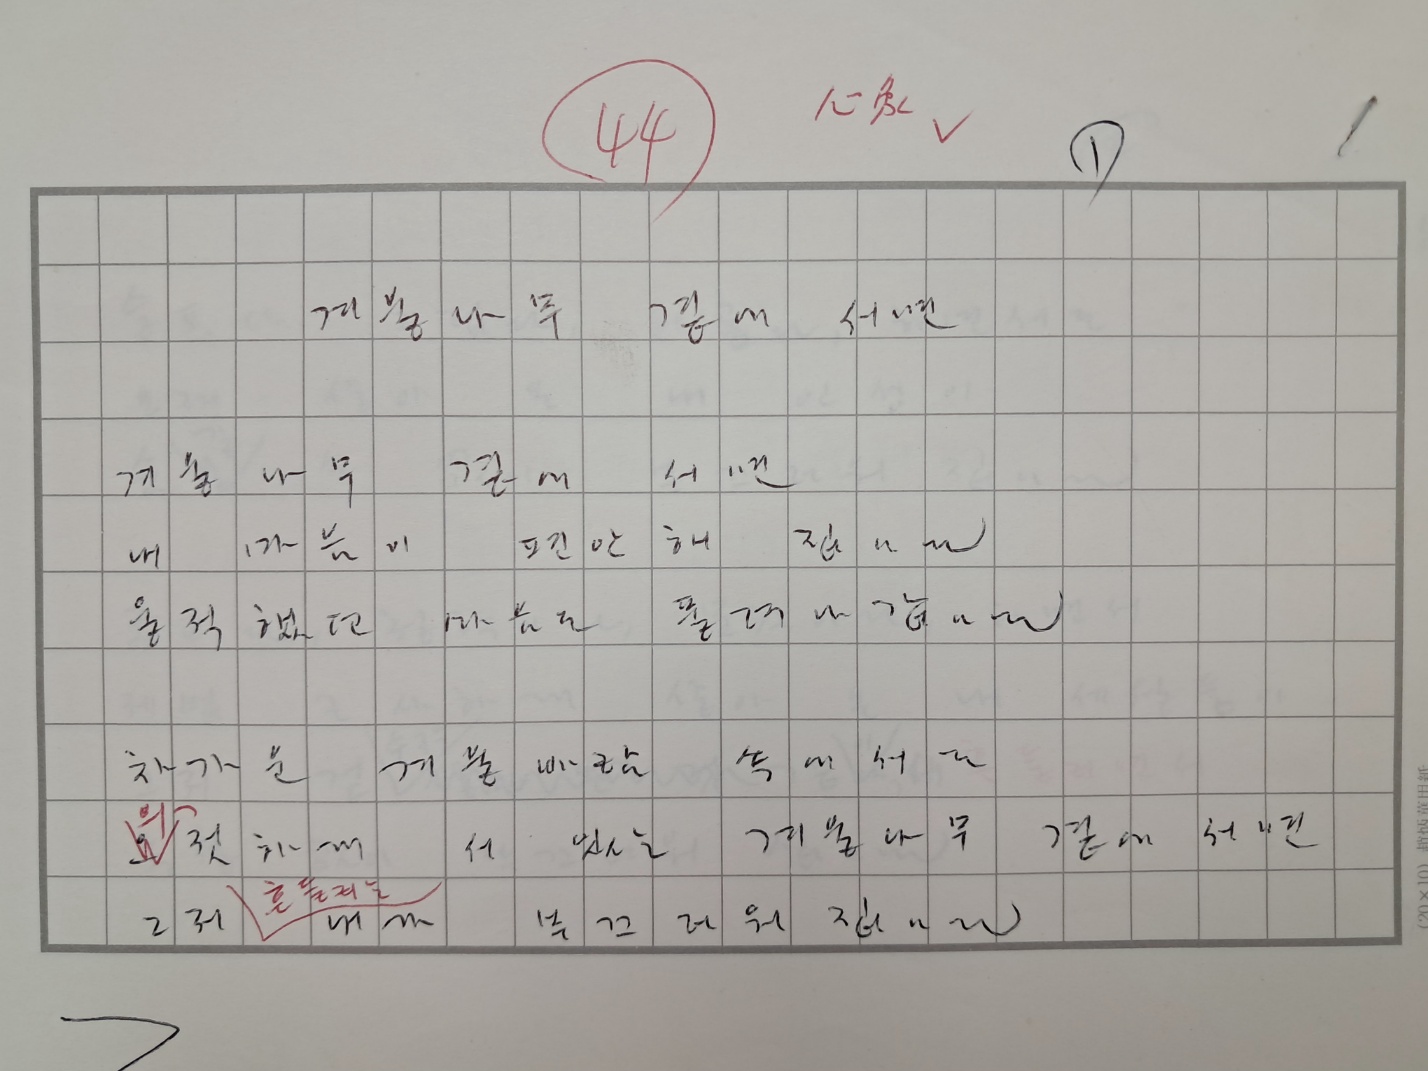 44 心象 ✓ ① /
겨울나무 곁에 서면
겨울나무 곁에 서면
내 마음이 편안해 집니다
울적했던 마음도 풀려나갑니다
차가운 겨울바람 속에서도
의
젓하게 서 있는 겨울나무 곁에 서면
흔들리는
그저 내가 부끄러워 집니다
(20×10)